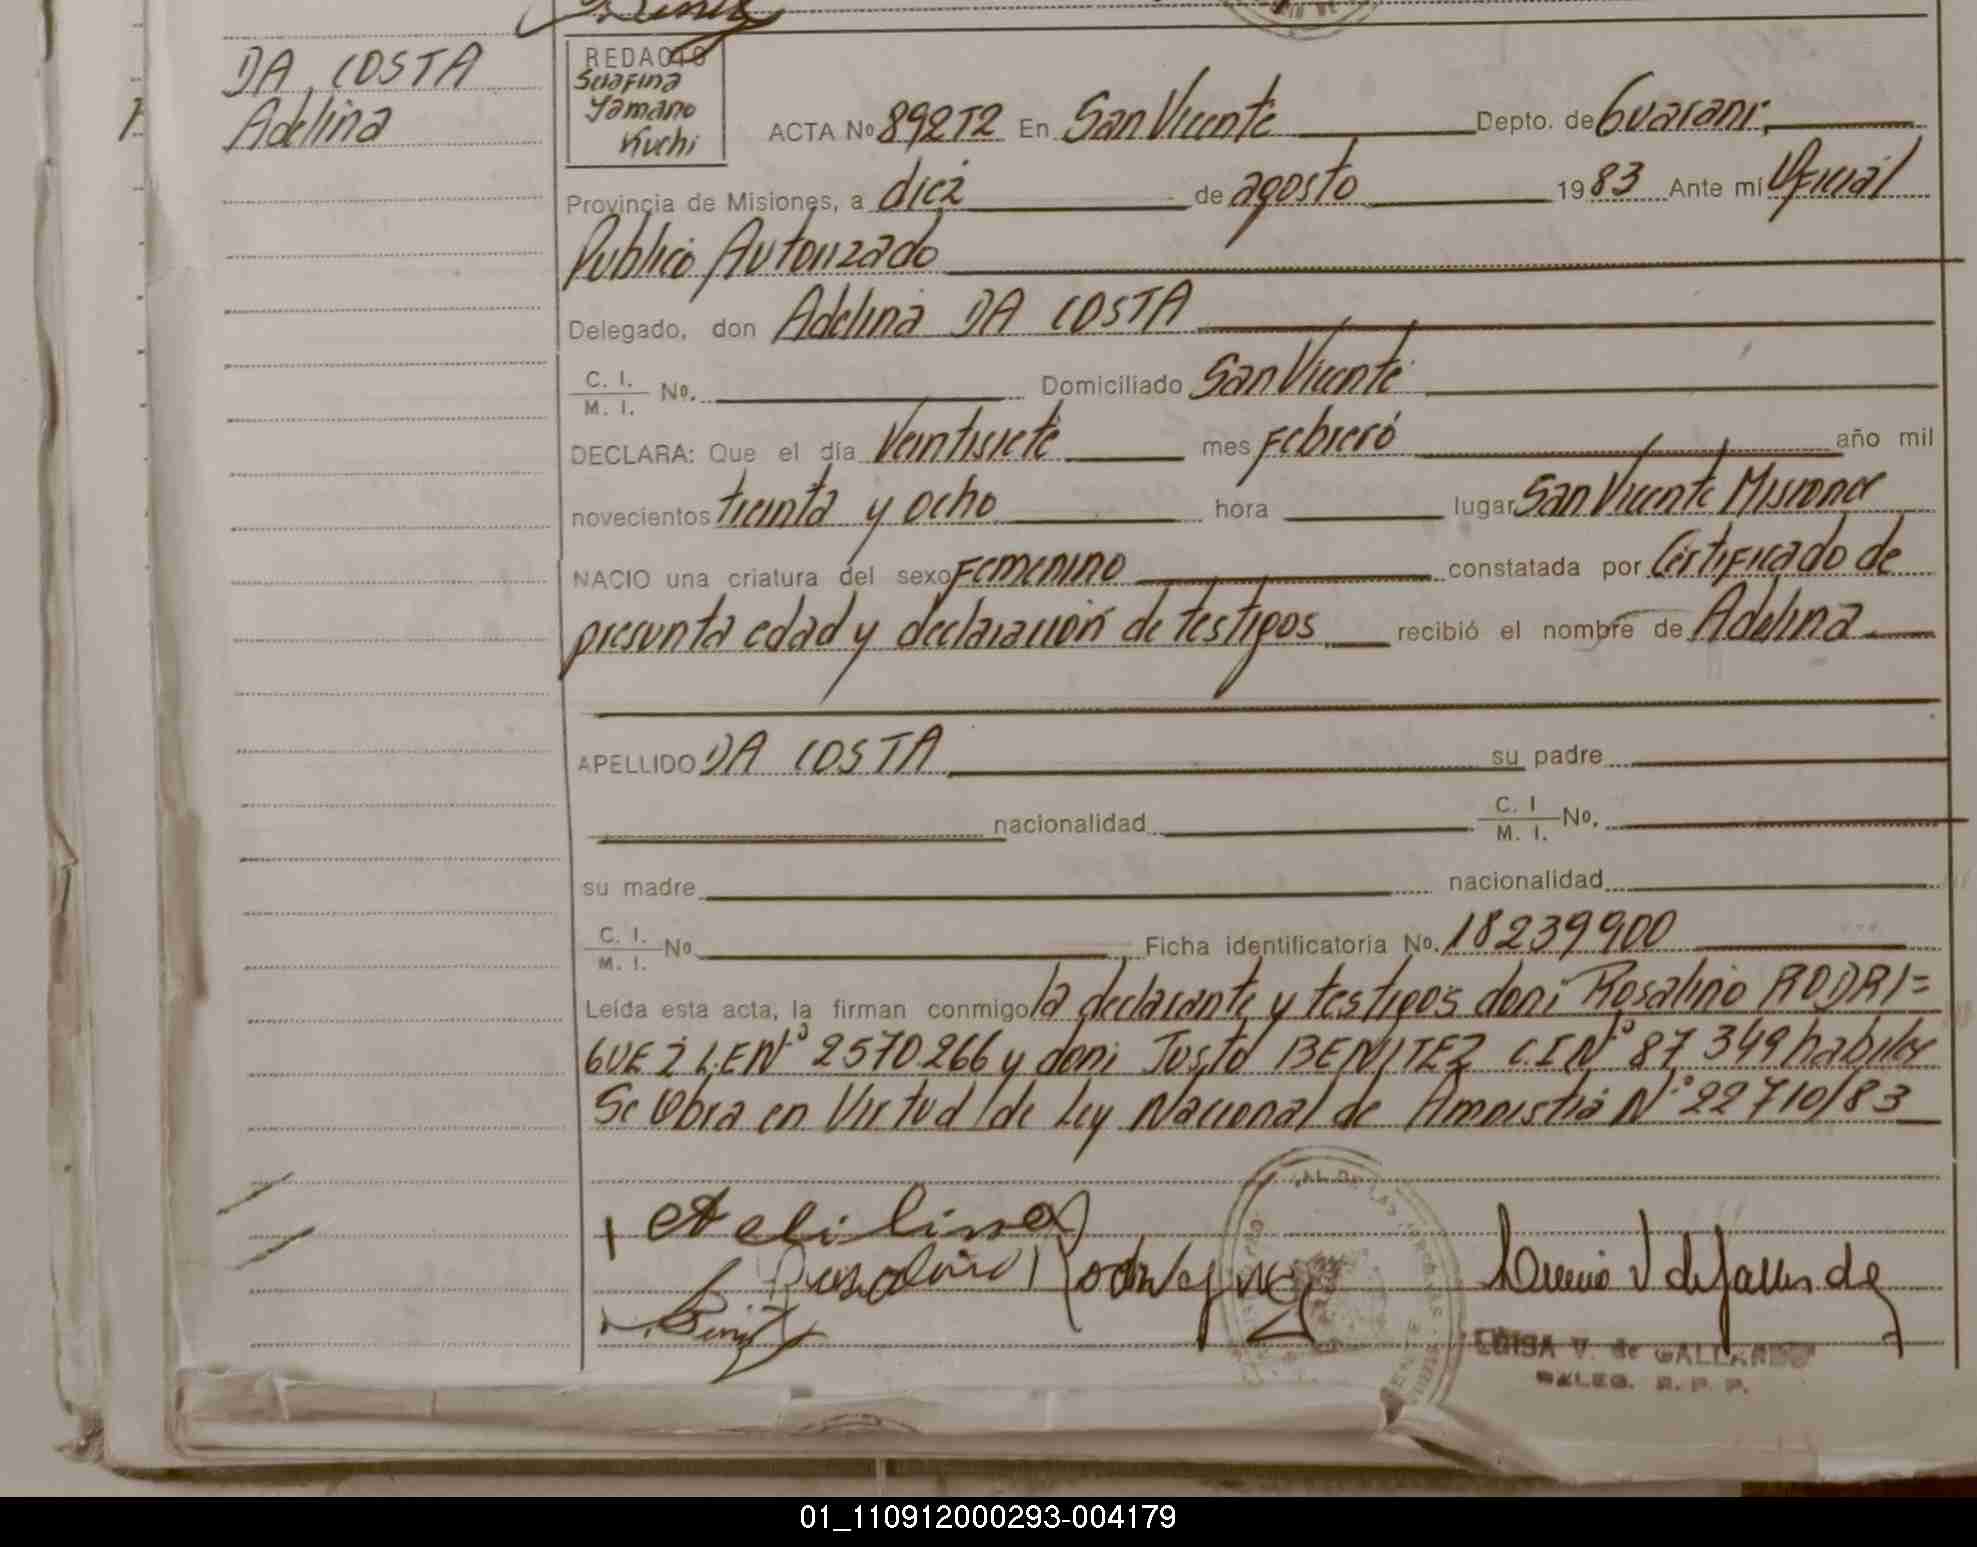 DA COSTA
Adelina
REDACTO
Serafina
Yamano
Kuchi
ACTA No 892T2 En San Vicente Depto. de Guarani
Provincia de Misiones, a diez de agosto 1983 Ante mí Oficial
Publico Autorizado
Delegado, don Adelina DA COSTA
C. I.
M. I. No. Domiciliado San Vicente
DECLARA: Que el día Veintisiete mes Febrero año mil
novecientos treinta y ocho hora lugar San Vicente Misiones
NACIO una criatura del sexo Femenino constatada por Certificado de
presunta edad y declaración de testigos recibió el nombre de Adelina
APELLIDO DA COSTA su padre
nacionalidad C. I
M. I. No.
su madre nacionalidad
C. I.
M. I. No Ficha identificatoria No. 18239900
Leída esta acta, la firman conmigo la declarante y testigos don: Rosalino RODRI=
GUEZ L.E Nº 2570.266 y don: Justo BENITEZ C.I Nº 87 349 habiles
Se Obra en Virtud de Ley Nacional de Amnistia Nº 22710/83
Rodriguez
LUISA V. de GALLARDO
DELEG. R. P. P.
01_110912000293-004179